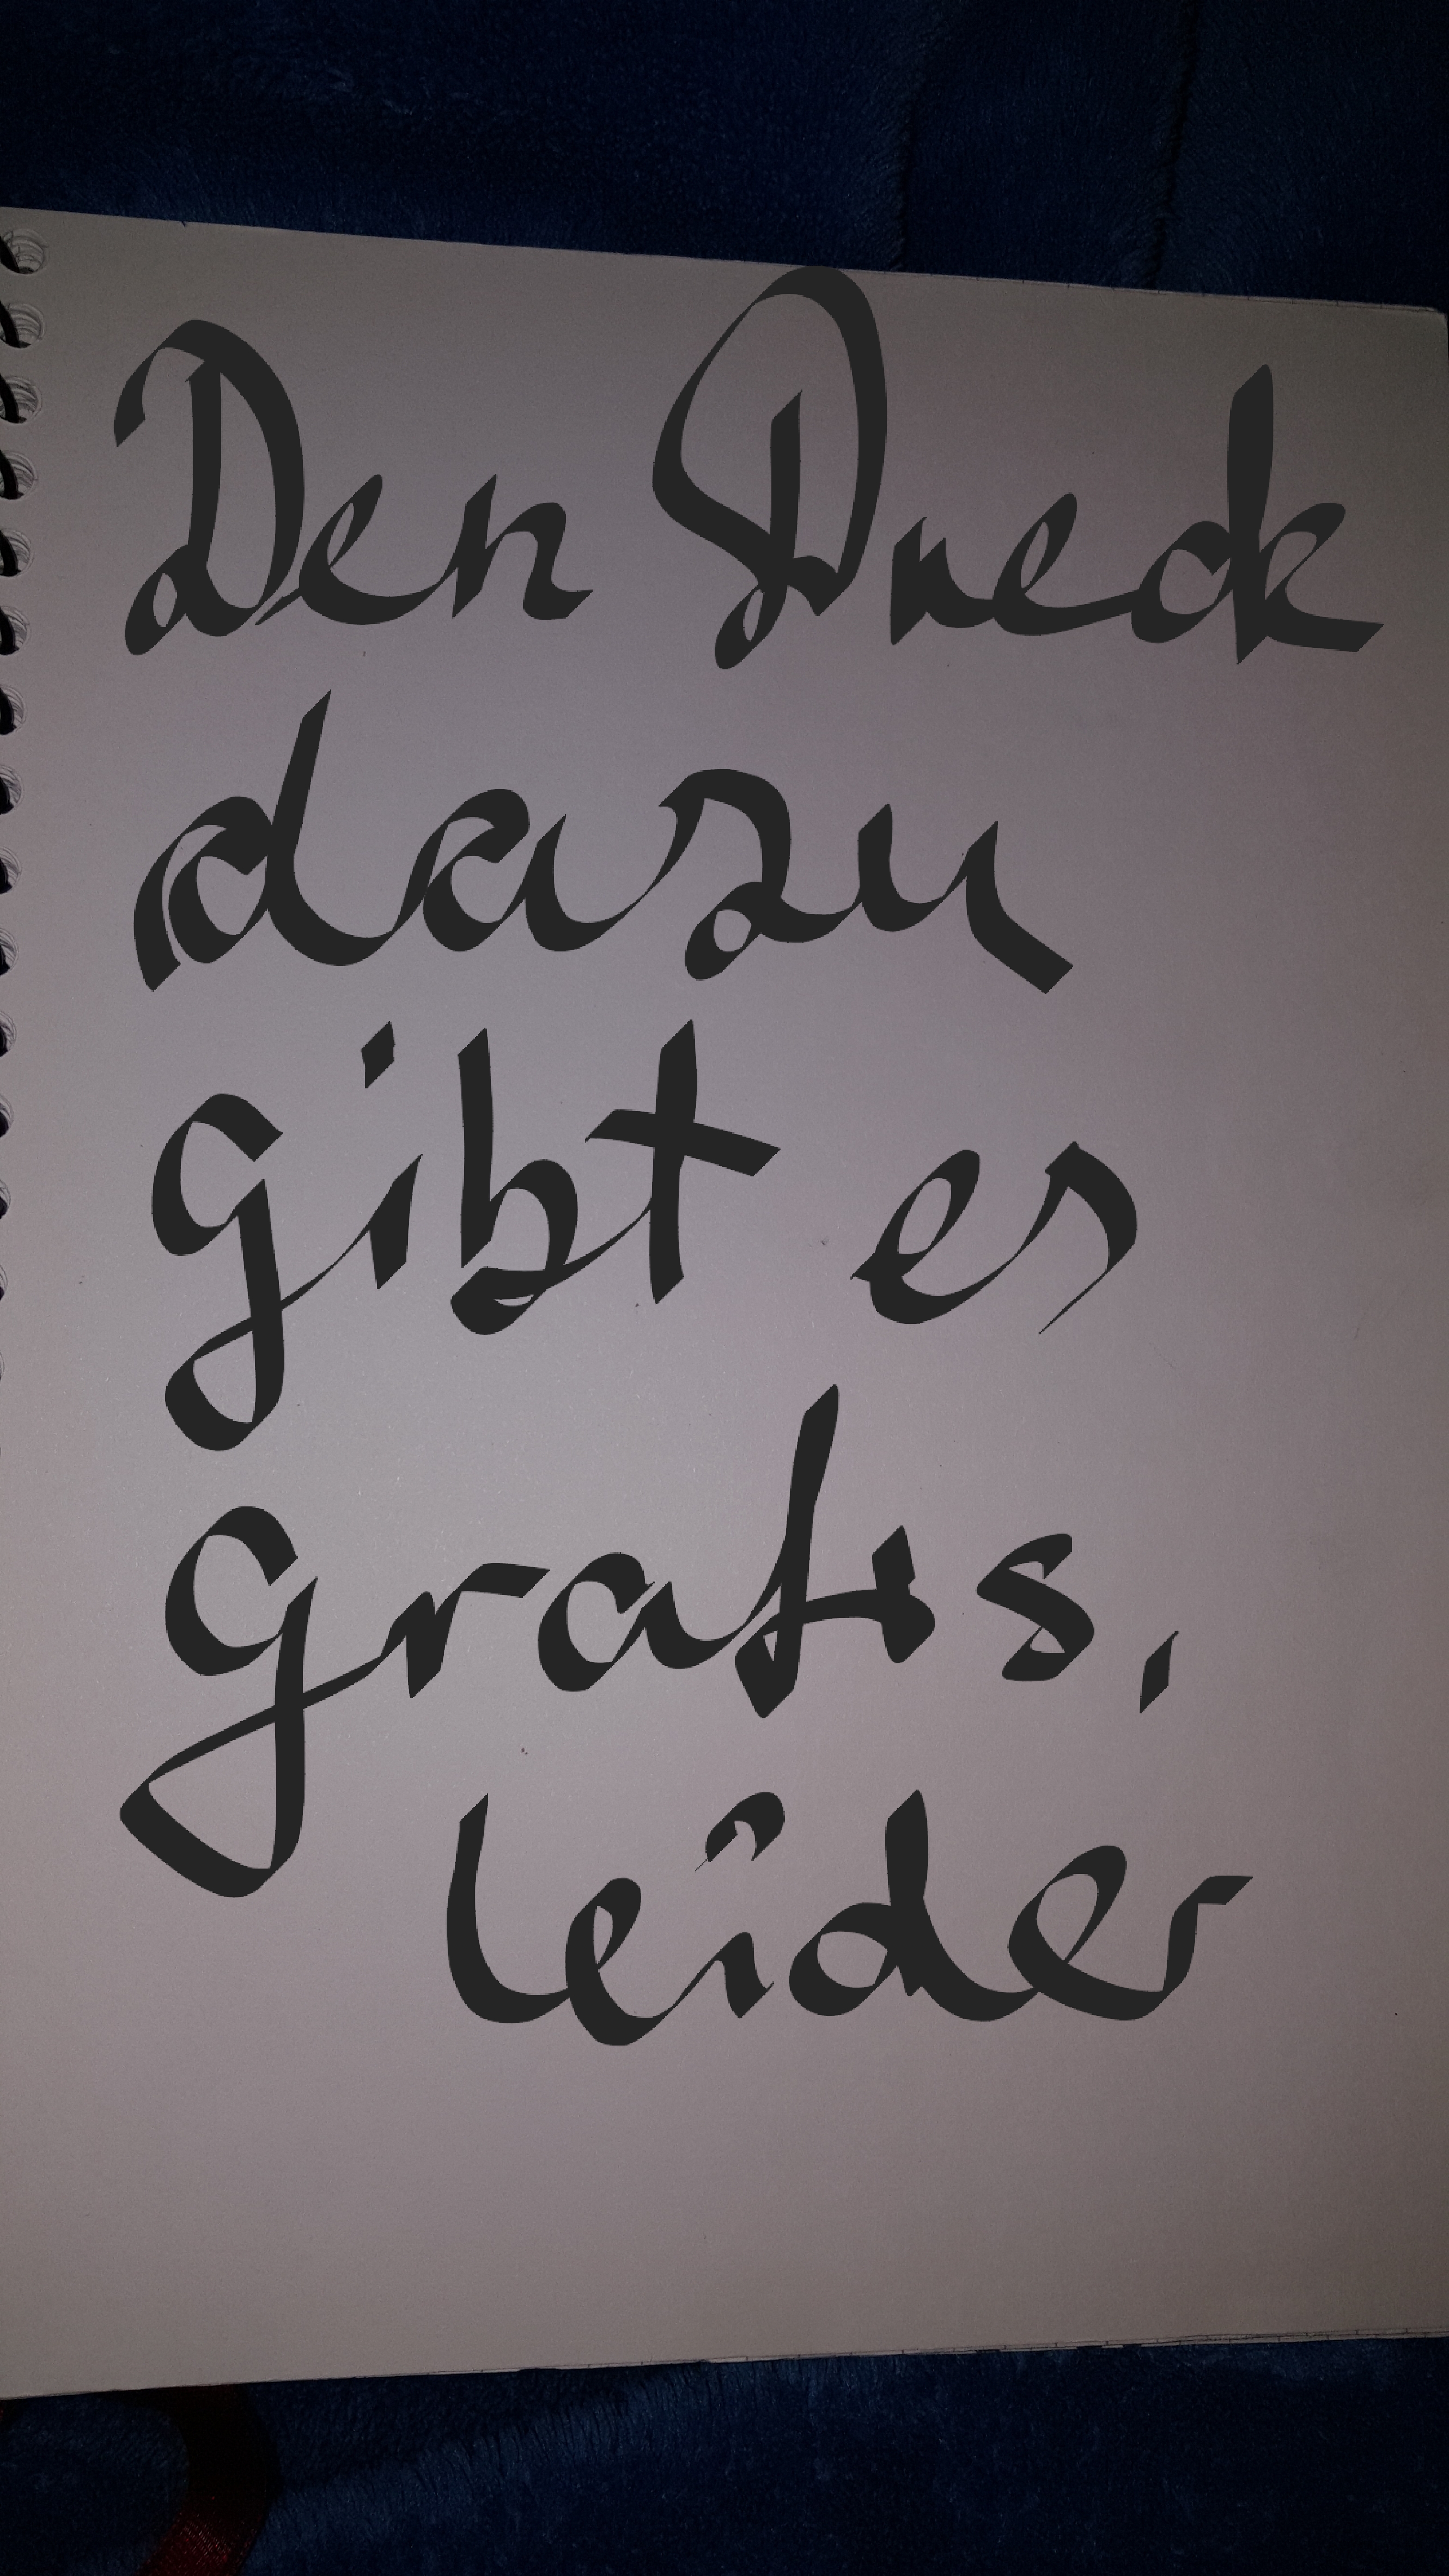 Den Dreck
dazu
gibt es
gratis,
leider